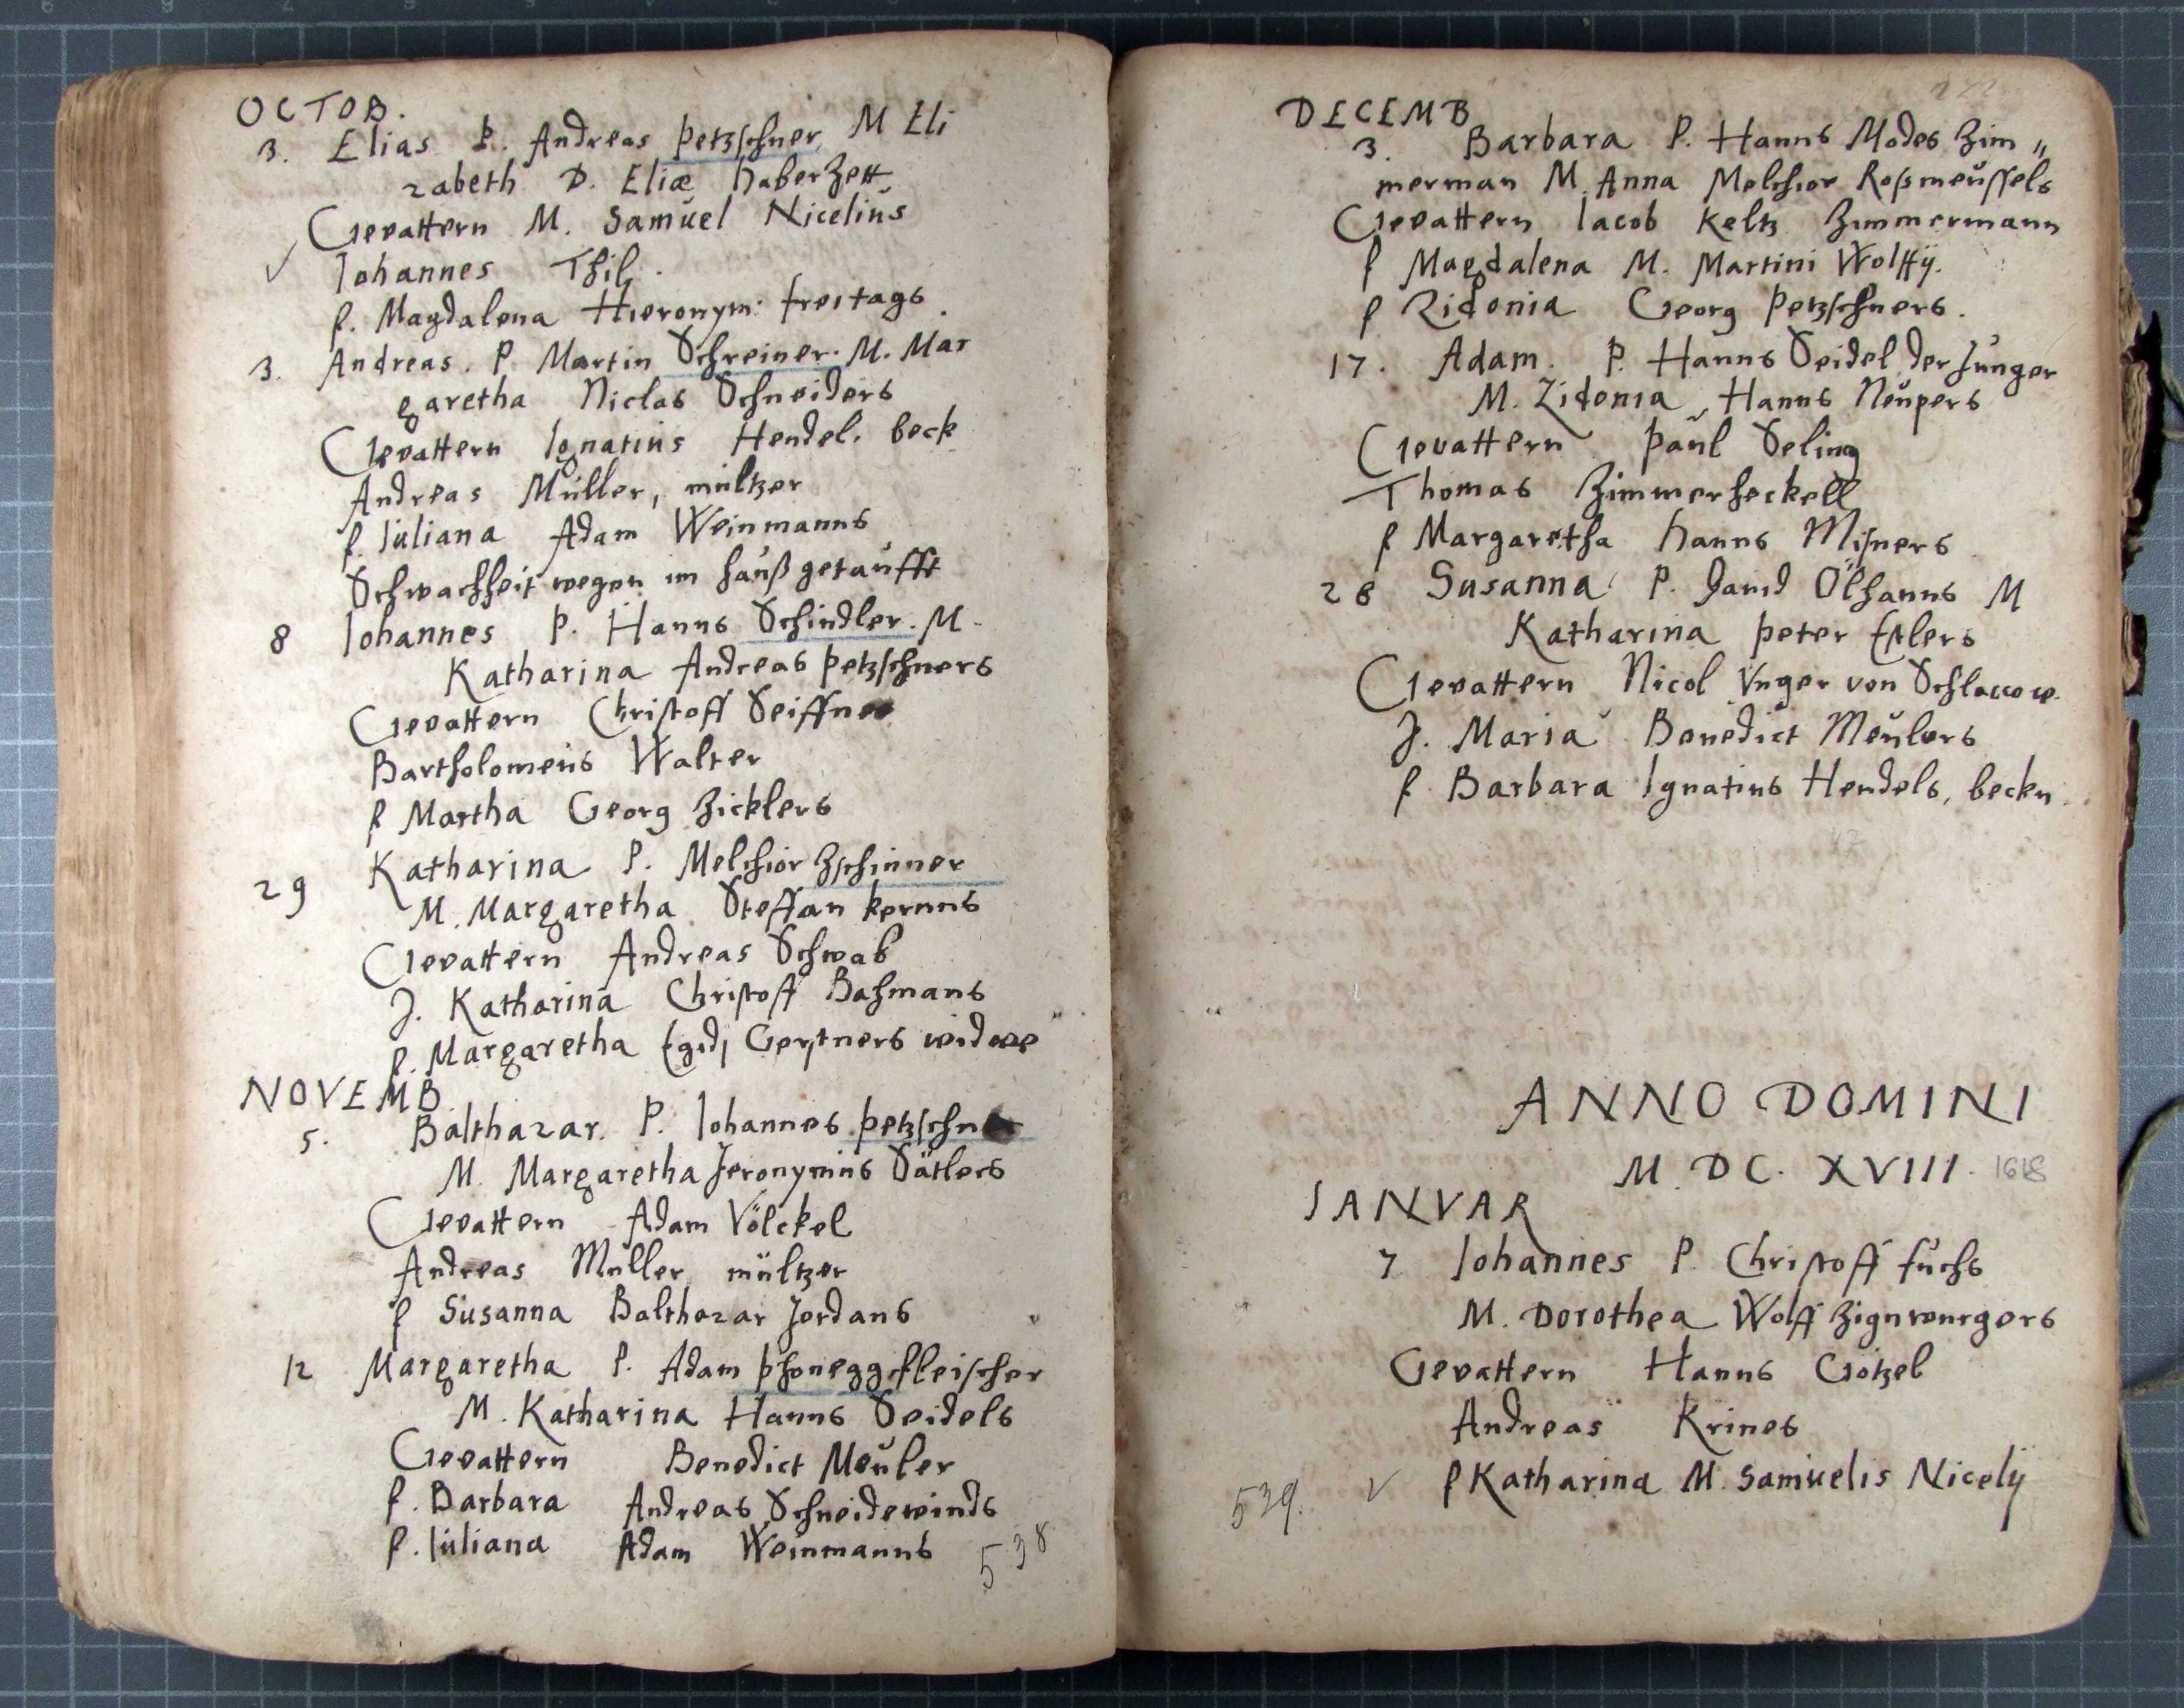 OCTOB.
3. Elias P. Andreas Petzschner, M Eli
zabeth D. Eliæ Haberzett
Gevattern M. Samuel Nicelius
Iohannes Thil.
f. Magdalena Hieronym: freitags
3. Andreas. P Martin Schreiner. M. Mar
garetha Niclas Schneiders
Gevattern Ignatius Hendel. beck
Andreas Müller, mültzer
f. Iuliana Adam Weinmanns
Schwachheit wegen im hauß getaufft
8 Iohannes P. Hanns Schindler. M.
Katharina Andreas Petzschners
Gevattern Christoff Seiffner
Bartholomeus Walter
f Martha Georg Zicklers
29 Katharina P. Melchior Zschinner
M. Margaretha Steffan kernns
Gevattern Andreas Schwab
J. Katharina Christoff Bahmans
f. Margaretha Egidj Gertners widwe
NOVEMB
5. Balthazar. P. Iohannes Petzschner
M. Margaretha Jeronymus Sätlers
Gevattern Adam Völckel
Andreas Muller mültzer
f Susanna Balthazar Jordans
12 Margaretha P. Adam Phoneggfleischer
M. Katharina Hanns Seidels
Gevattern Benedict Meuler
f. Barbara Andreas Schneidewinds
f. Iuliana Adam Weinmanns
538
DECEMB
3. Barbara P. Hanns Modes Zim„
merman M. Anna Melchior Roßmeussels
Gevattern Iacob Keltz Zimmermann
f Magdalena M. Martini Wolffÿ.
f Zidonia Georg Petzschners.
17. Adam. P. Hanns Seidel der Junger
M. Zidonia Hanns Neupers
Gevattern Paul Seling
Thomas Zimmerheckell
f Margaretha Hanns Misners
28 Susanna P. David Ölhanns M
Katharina Peter Ertlers
Gevattern Nicol Vnger von
J. Maria Benedict Meulers
f Barbara Ignatius Hendels, beckn.
ANNO DOMINI
M. DC. XVIII. 1618
IANVAR
7 Iohannes P. Christoff fuchs
M. Dorothea Wolff Zignwurgers
Gevattern Hanns Götzel
Andreas Krines
f Katharina M. Samuelis Nicelÿ
539.